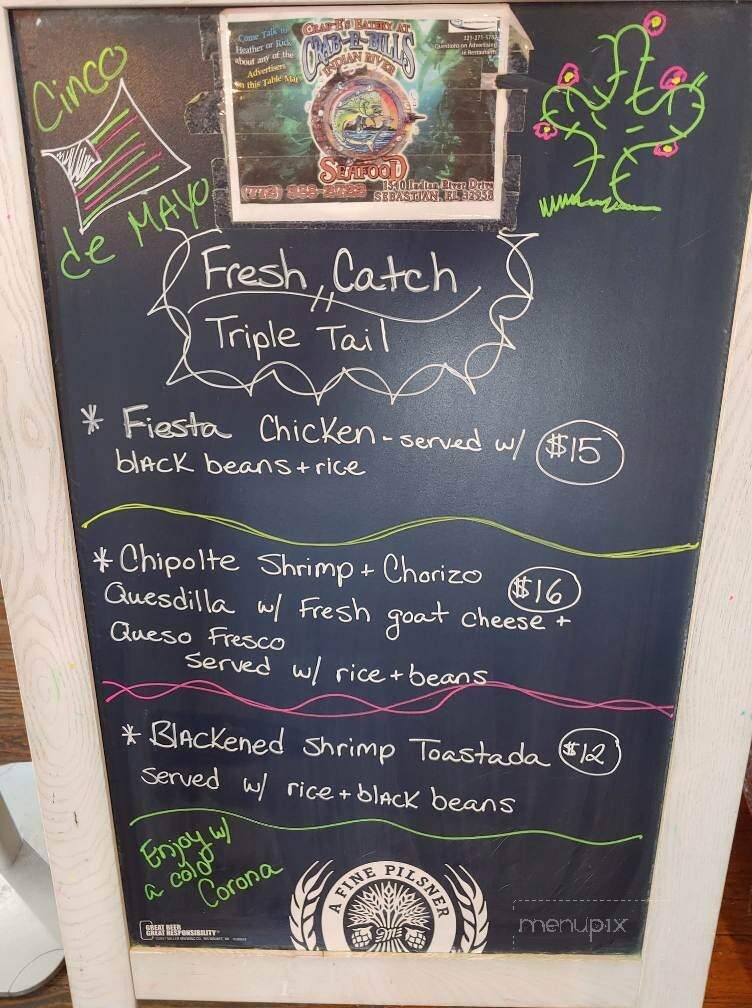 Cinco
de MAYO
Come Talk to
Heather or Rick
about any of the
Advertisers
on this Table Mat
CRAB-E'S EATERY AT
CRAB-E-BILLS
INDIAN RIVER
SEAFOOD
Questions on Advertising
in Restaurants
(772)
1540 Indian River Drive
SEBASTIAN, FL 32958
Fresh Catch
"
Triple Tail
* Fiesta Chicken - served w/ $15
blACK beans + rice
* Chipolte Shrimp + Chorizo $16
Quesdilla w/ Fresh goat cheese +
Queso Fresco
served w/ rice + beans
* BlAckened Shrimp Toastada $12
served w/ rice + blACK beans
Enjoy w/
a cold
Corona
A FINE PILSNER
GREAT BEER
GREAT RESPONSIBILITY
menupix